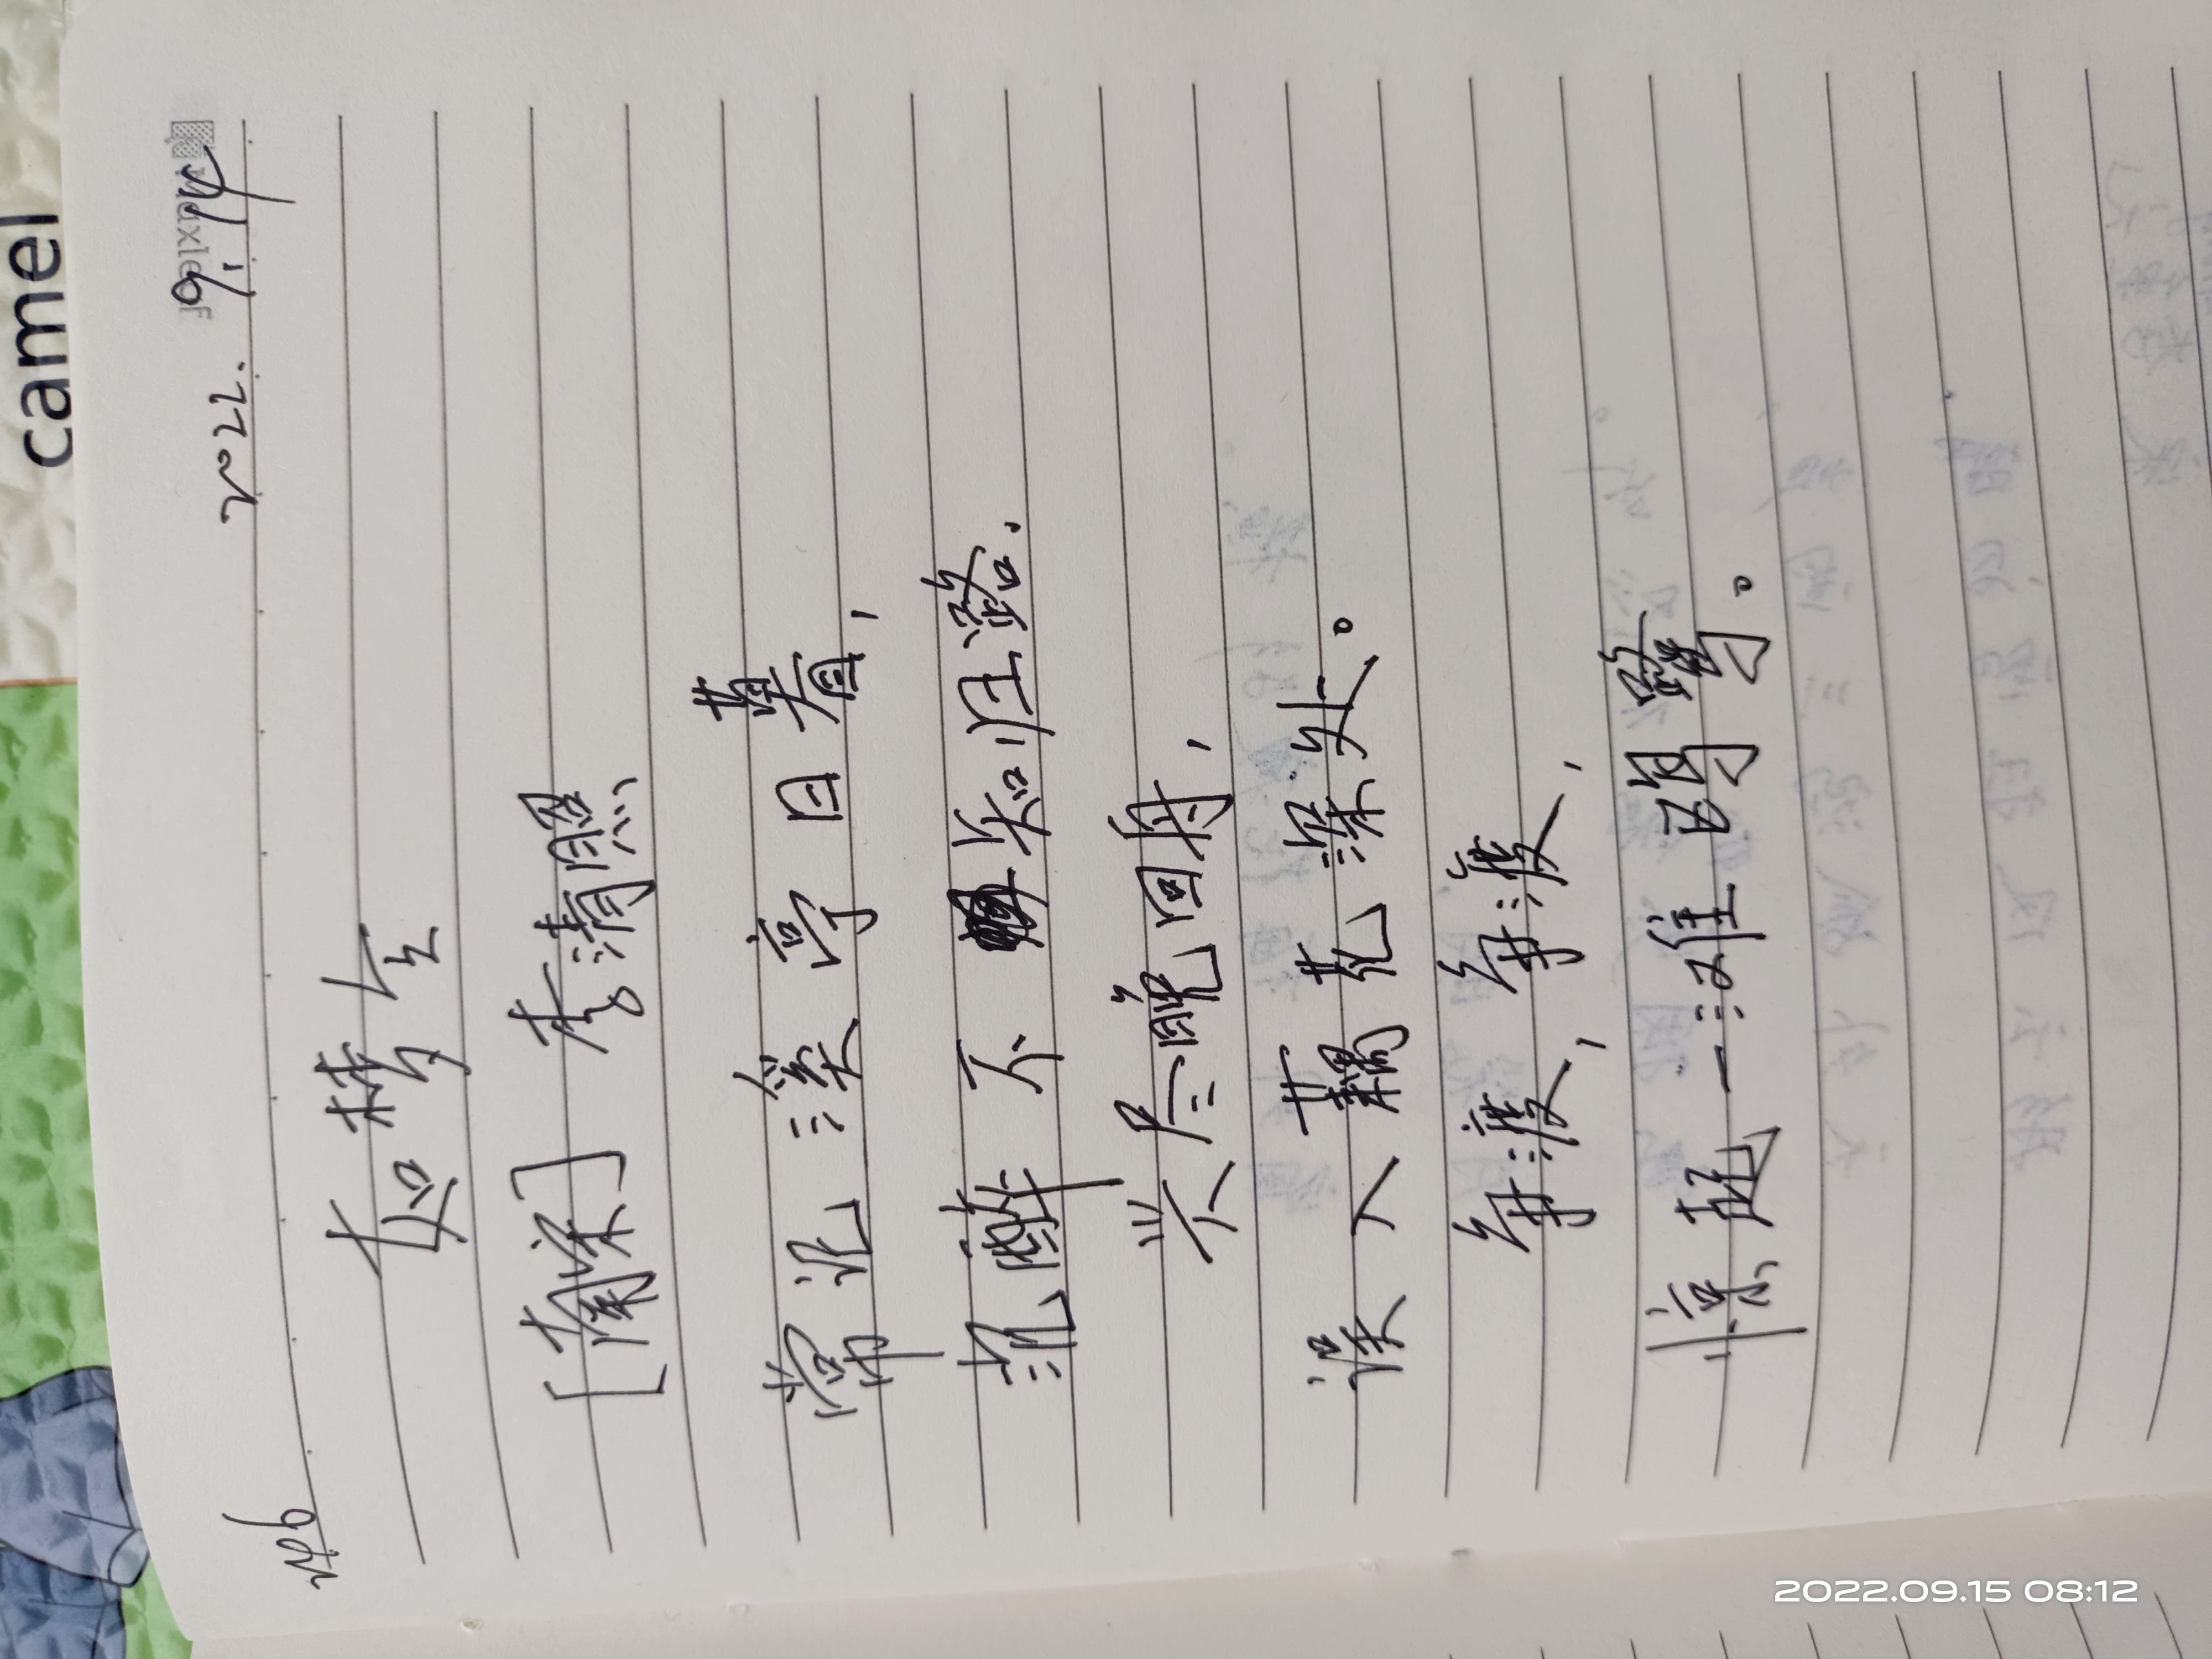 camel
Maxleaf
2022. 9. 14
如梦令
[南宋] 李清照
常记溪亭日暮,
沉醉不知归路.
兴尽晚回舟,
误入藕花深处。
争渡, 争渡,
惊起一滩鸥鹭。
2022.09.15 08:12